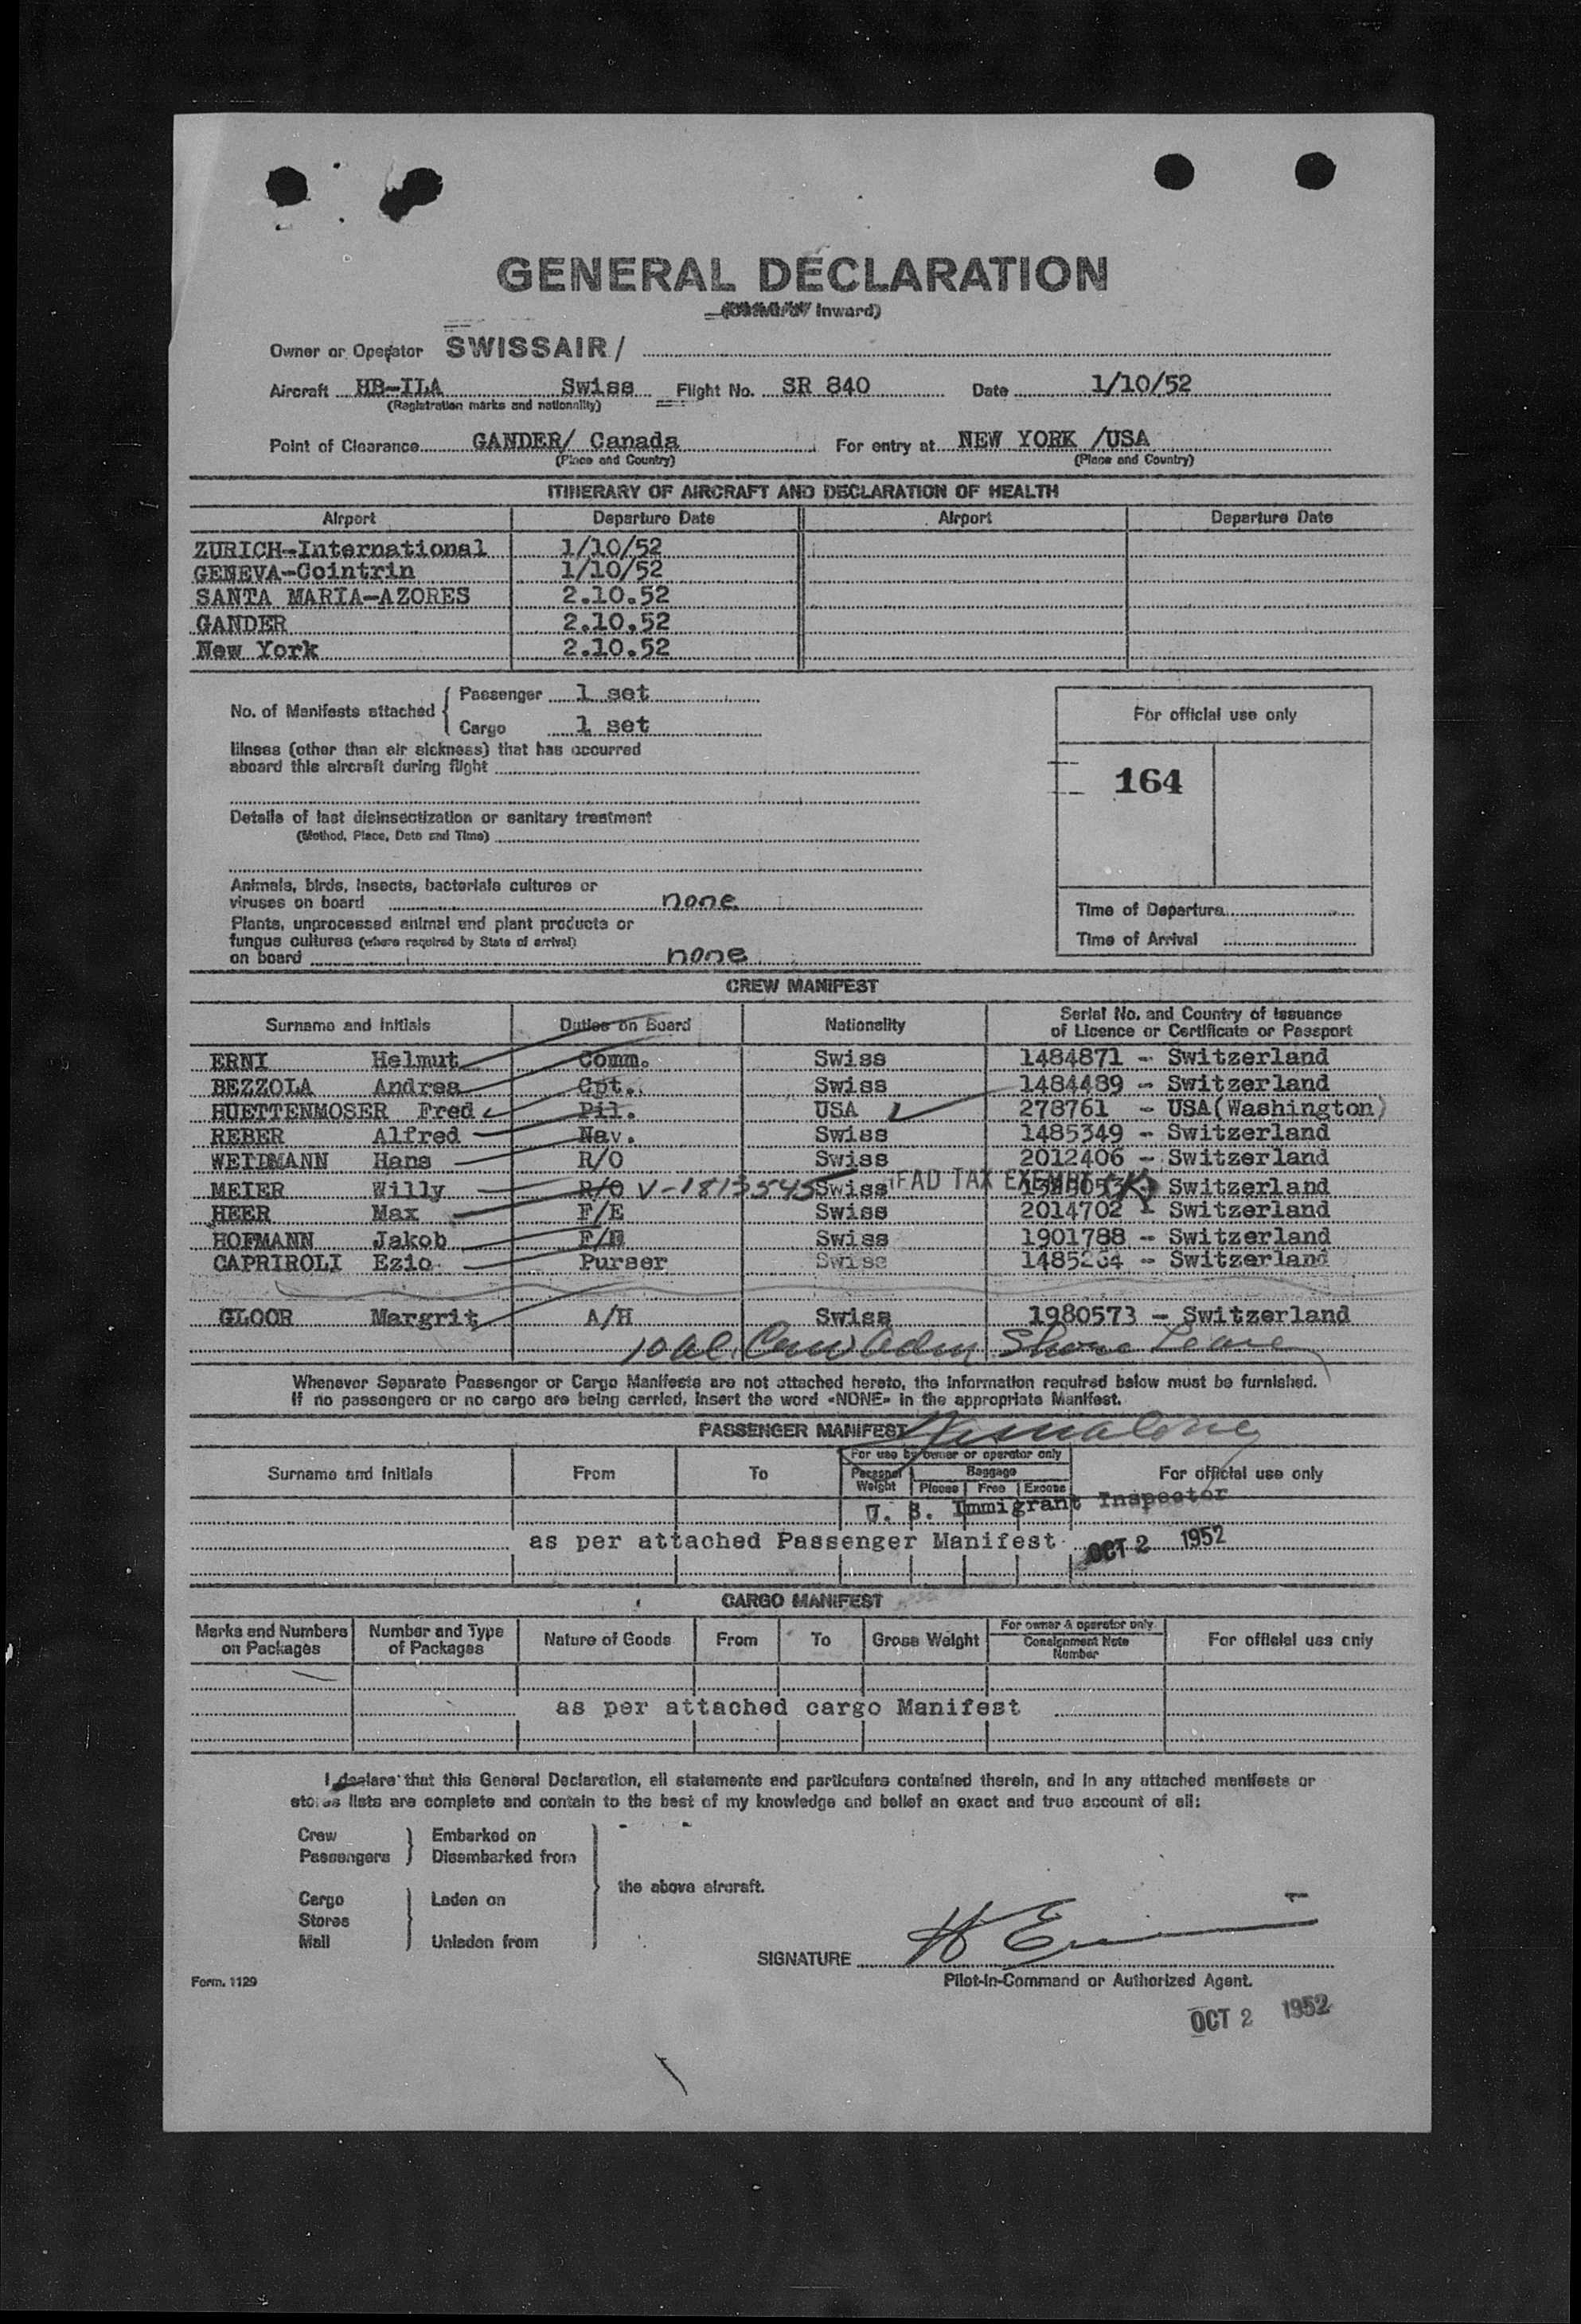 GENERAL DECLARATION
Inward)
Owner or Operator SWISSAIR/
Aircraft HB-ILA Swiss Flight No. SR 840 Date 1/10/52
(Registration marks and nationality)
Point of Clearance GANDER/ Canada For entry at NEW YORK /USA
(Place and Country) (Place and Country)
ITINERARY OF AIRCRAFT AND DECLARATION OF HEALTH
Airport Departure Date Airport Departure Date
ZURICH-International 1/10/52
GENEVA-Cointrin 1/10/52
SANTA MARIA-AZORES 2.10.52
GANDER 2.10.52
New York 2.10.52
No. of Manifests attached { Passenger 1 set
Cargo 1 set
For official use only
Illness (other than air sickness) that has occurred
aboard this aircraft during flight
164
Details of last disinsectization or sanitary treatment
(Method, Place, Date and Time)
Animals, birds, insects, bacterials cultures or
viruses on board none
Plants, unprocessed animal and plant products or
fungus cultures (where required by State of arrival)
on board none
Time of Departure
Time of Arrival
CREW MANIFEST
Surname and Initials Duties on Board Nationality Serial No. and Country of Issuance
of Licence or Certificate or Passport
ERNI Helmut Comm. Swiss 1484871 - Switzerland
BEZZOLA Andrea Cpt. Swiss 1484489 - Switzerland
HUETTENMOSER Fred Pil. USA 278761 - USA(Washington)
REBER Alfred Nav. Swiss 1485349 - Switzerland
WEIDMANN Hans R/O Swiss 2012406 - Switzerland
MEIER Willy R/O V-1813545 Swiss HEAD TAX EXEMPT (K) Switzerland
HEER Max F/E Swiss 2014702 - Switzerland
HOFMANN Jakob F/E Swiss 1901788 - Switzerland
CAPRIROLI Ezio Purser Swiss 1485264 - Switzerland
GLOOR Margrit A/H Swiss 1980573 - Switzerland
10 al. Crew Adm Shore Leave
Whenever Separate Passenger or Cargo Manifests are not attached hereto, the information required below must be furnished.
If no passengers or no cargo are being carried, insert the word «NONE» in the appropriate Manifest.
PASSENGER MANIFEST
Surname and Initials From To For use by owner or operator only For official use only
Passenger Weight Baggage
Pieces Free Excess
U. S. Immigrant Inspector
as per attached Passenger Manifest OCT 2 1952
CARGO MANIFEST
Marks and Numbers on Packages Number and Type of Packages Nature of Goods From To Gross Weight For owner & operator only Consignment Note Number For official use only
as per attached cargo Manifest
I declare that this General Declaration, all statements and particulars contained therein, and in any attached manifests or
stores lists are complete and contain to the best of my knowledge and belief an exact and true account of all:
Crew } Embarked on
Passengers } Disembarked from
the above aircraft.
Cargo } Laden on
Stores
Mail } Unladen from
SIGNATURE H Erni
Form. 1129 Pilot-in-Command or Authorized Agent.
OCT 2 1952